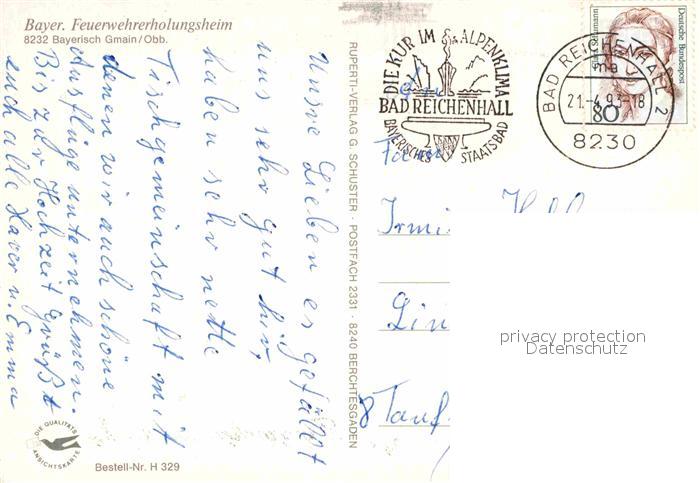 Bayer. Feuerwehrerholungsheim
8232 Bayerisch Gmain/Obb.
Unsre Lieben es gefällt
uns sehr gut hir,
haben sehr nette
Tischgemeinschaft mit
denen wir auch schöne
Ausflüge unternehmen.
Bis zur Hochzeit grüßt
euch alle Xaver u Emma
DIE QUALITÄTS
ANSICHTSKARTE
Bestell-Nr. H 329
RUPERTI-VERLAG G. SCHUSTER · POSTFACH 2331 · 8240 BERCHTESGADEN
DIE KUR IM ALPENKLIMA
BAD REICHENHALL
BAYERISCHES STAATSBAD
BAD REICHENHALL 2
ma
21.-4.93-18
8230
Deutsche Bundespost
80
Fam
Irmi
Lin
8 Tauf
privacy protection
Datenschutz